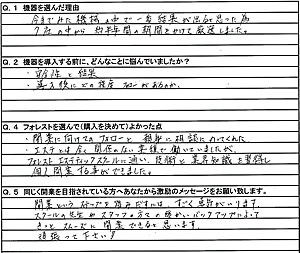 Q. 1 機器を選んだ理由
今までみた機械の中で一番結果が出ると思った為
約半年の期間をかけて厳選しました。
Q. 2 機器を導入する前に、どんなことに悩んでいましたか?
・ 結果
・導入後にどの程度フォローがあるのか。
Q. 4 フォレストを選んで(購入を決めて)よかった点
・開業に向けてのフォローと 親身に相談にのってくれた
・エステとは全く関係のない業種で働いていましたが、
フォレストエステティックスクールに通い、技術と業界知識を習得し
個人開業する事ができました。
Q. 5 同じく開業を目指されている方へあなたから激励のメッセージをお願い致します。
開業というステップを踏みだすには、すごく勇気がいります。
スクールの先生やスタッフの方々の暖かいバックアップによって
きっとスムーズに開業できると思います。
頑張って下さい!